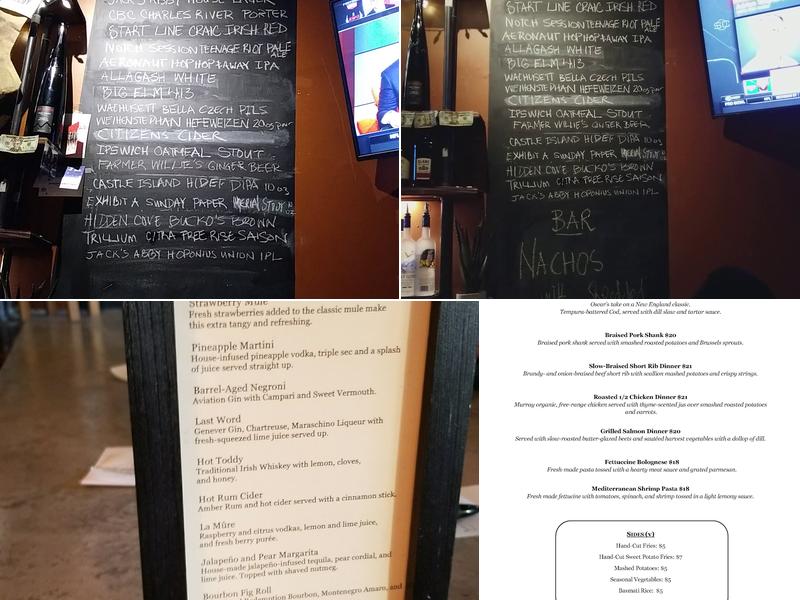 JACK'S ABBY HOUSE LAGER
CBC CHARLES RIVER PORTER
START LINE CRAIC IRISH RED
NOTCH SESSION TEENAGE RIOT PALE ALE
AERONAUT HOP HOP & AWAY IPA
ALLAGASH WHITE
BIG ELM 413
WACHUSETT BELLA CZECH PILS
WEIHENSTEPHAN HEFEWEIZEN 20oz pour
CITIZENS CIDER
IPSWICH OATMEAL STOUT
FARMER WILLIE'S GINGER BEER
CASTLE ISLAND HIDEF DIPA 10 oz
EXHIBIT A SUNDAY PAPER IMPERIAL STOUT
HIDDEN COVE BUCKO'S BROWN
TRILLIUM CITRA FREE RISE SAISON
JACK'S ABBY HOPONIUS UNION IPL
START LINE CRAIC IRISH RED
NOTCH SESSION TEENAGE RIOT PALE ALE
AERONAUT HOP HOP & AWAY IPA
ALLAGASH WHITE
BIG ELM 413
WACHUSETT BELLA CZECH PILS
WEIHENSTEPHAN HEFEWEIZEN 20oz pour
CITIZENS CIDER
IPSWICH OATMEAL STOUT
FARMER WILLIE'S GINGER BEER
CASTLE ISLAND HIDEF DIPA 10 oz
EXHIBIT A SUNDAY PAPER IMPERIAL STOUT
HIDDEN COVE BUCKO'S BROWN
TRILLIUM CITRA FREE RISE SAISON
JACK'S ABBY HOPONIUS UNION IPL
BAR
NACHOS
Strawberry Mule
Fresh strawberries added to the classic mule make
this extra tangy and refreshing.
Pineapple Martini
House-infused pineapple vodka, triple sec and a splash
of juice served straight up.
Barrel-Aged Negroni
Aviation Gin with Campari and Sweet Vermouth.
Last Word
Genever Gin, Chartreuse, Maraschino Liqueur with
fresh-squeezed lime juice served up.
Hot Toddy
Traditional Irish Whiskey with lemon, cloves,
and honey.
Hot Rum Cider
Amber Rum and hot cider served with a cinnamon stick.
La Mûre
Raspberry and citrus vodkas, lemon and lime juice,
and fresh berry purée.
Jalapeño and Pear Margarita
House-made jalapeño-infused tequila, pear cordial, and
lime juice. Topped with shaved nutmeg.
Bourbon Fig Roll
Redemption Bourbon, Montenegro Amaro, and
Oscar's take on a New England classic.
Tempura-battered Cod, served with dill slaw and tartar sauce.
Braised Pork Shank $20
Braised pork shank served with smashed roasted potatoes and Brussels sprouts.
Slow-Braised Short Rib Dinner $21
Brandy- and onion-braised beef short rib with scallion mashed potatoes and crispy strings.
Roasted 1/2 Chicken Dinner $21
Murray organic, free-range chicken served with thyme-scented jus over smashed roasted potatoes
and carrots.
Grilled Salmon Dinner $20
Served with slow-roasted butter-glazed beets and sautéed harvest vegetables with a dollop of dill.
Fettuccine Bolognese $18
Fresh made pasta tossed with a hearty meat sauce and grated parmesan.
Mediterranean Shrimp Pasta $18
Fresh made fettucine with tomatoes, spinach, and shrimp tossed in a light lemony sauce.
SIDES (v)
Hand-Cut Fries: $5
Hand-Cut Sweet Potato Fries: $7
Mashed Potatoes: $5
Seasonal Vegetables: $5
Basmati Rice: $5